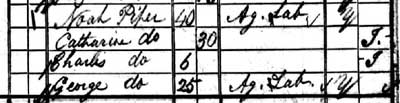 Noah Piper 40 Ag. Lab. Y
Catharine do 30 I.
Charles do 6 I
George do 25 Ag. Lab. Y